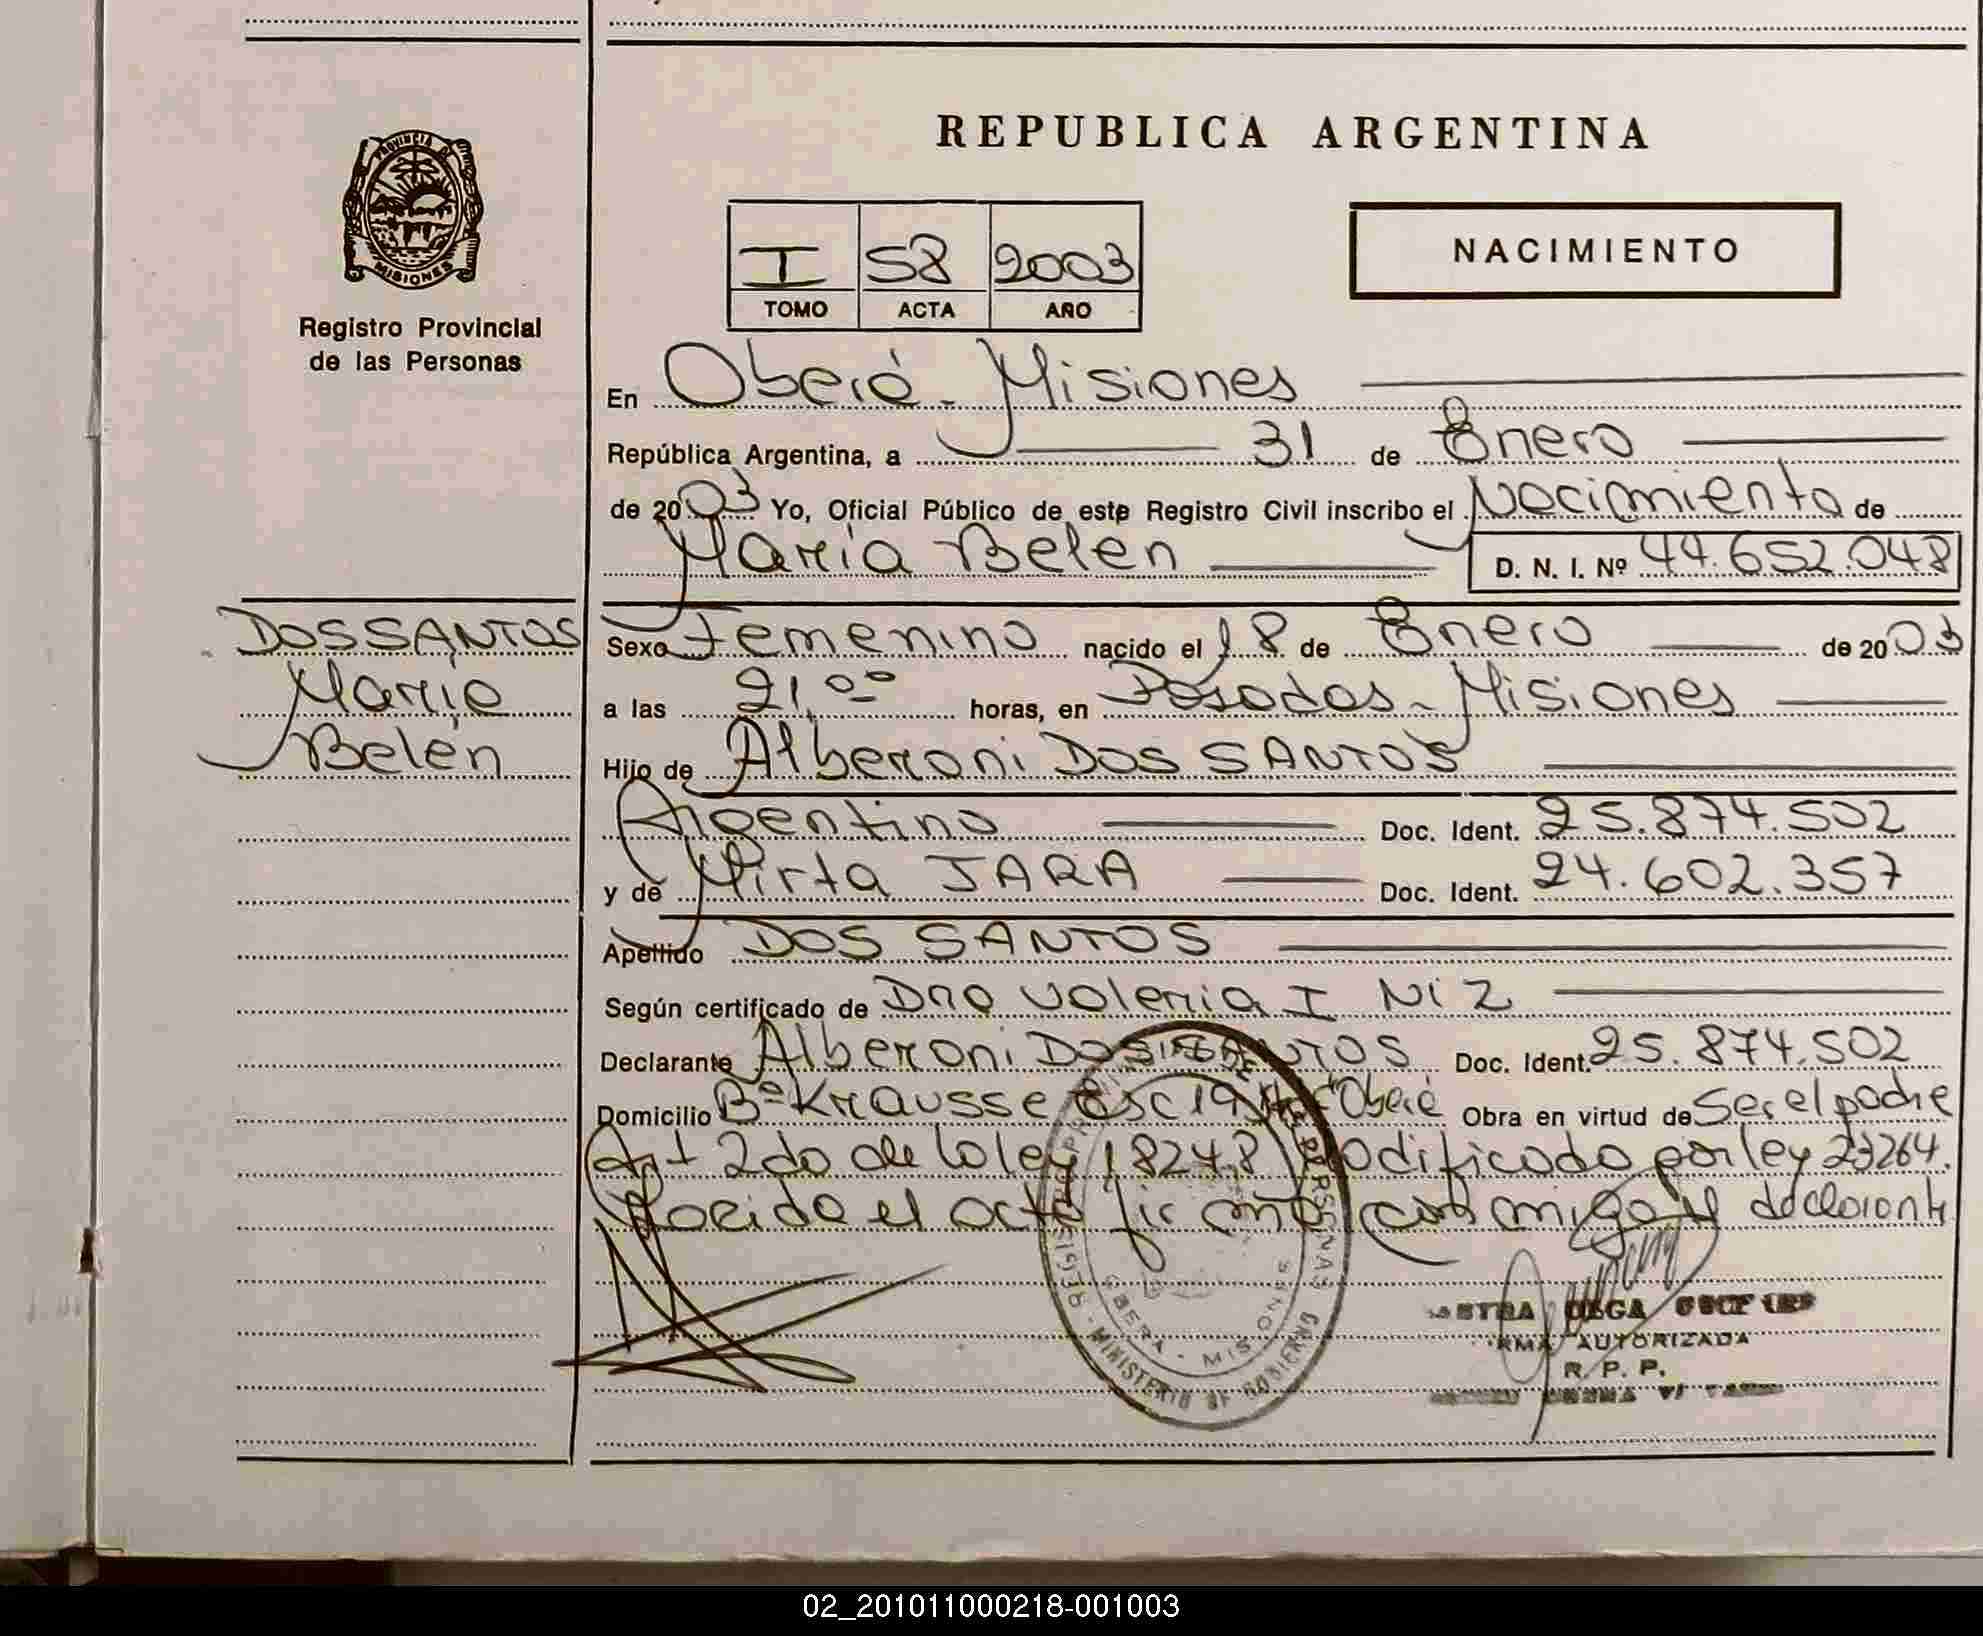 PROVINCIA DE
MISIONES
Registro Provincial
de las Personas
DOS SANTOS
María
Belén
REPUBLICA ARGENTINA
I 58 2003
TOMO ACTA AÑO
NACIMIENTO
En Oberá - Misiones
República Argentina, a 31 de Enero
de 2003 Yo, Oficial Público de este Registro Civil inscribo el Nacimiento de
María Belén D. N. I. Nº 44.652.048
Sexo Femenino nacido el 18 de Enero de 2003
a las 21,00 horas, en Posadas - Misiones
Hijo de Alberoni DOS SANTOS
Argentino Doc. Ident. 25.874.502
y de Mirta JARA Doc. Ident. 24.602.357
Apellido DOS SANTOS
Según certificado de Dra Valeria I Niz
Declarante Alberoni DOS SANTOS Doc. Ident. 25.874.502
Domicilio Bº Krausse Esc 19 Oberá Obra en virtud de Ser el padre
Art 2do de la ley 18248 Modificado por ley 23264.
el acta conmigo el declarante
OBERA - MISIONES
MINISTERIO DE GOBIERNO
OLGA
FIRMA AUTORIZADA
R. P. P.
02_201011000218-001003